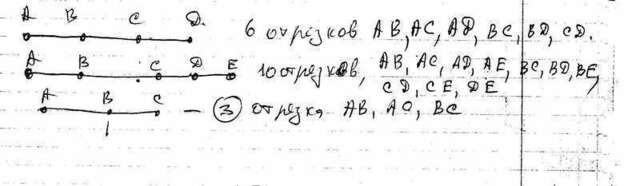 A B C D. 6 отрезков AB, AC, AD, BC, BD, CD.
A B C D E 10 отрезков, AB, AC, AD, AE, BC, BD, BE,
CD, CE, DE
A B C — 3 отрезка AB, AC, BC